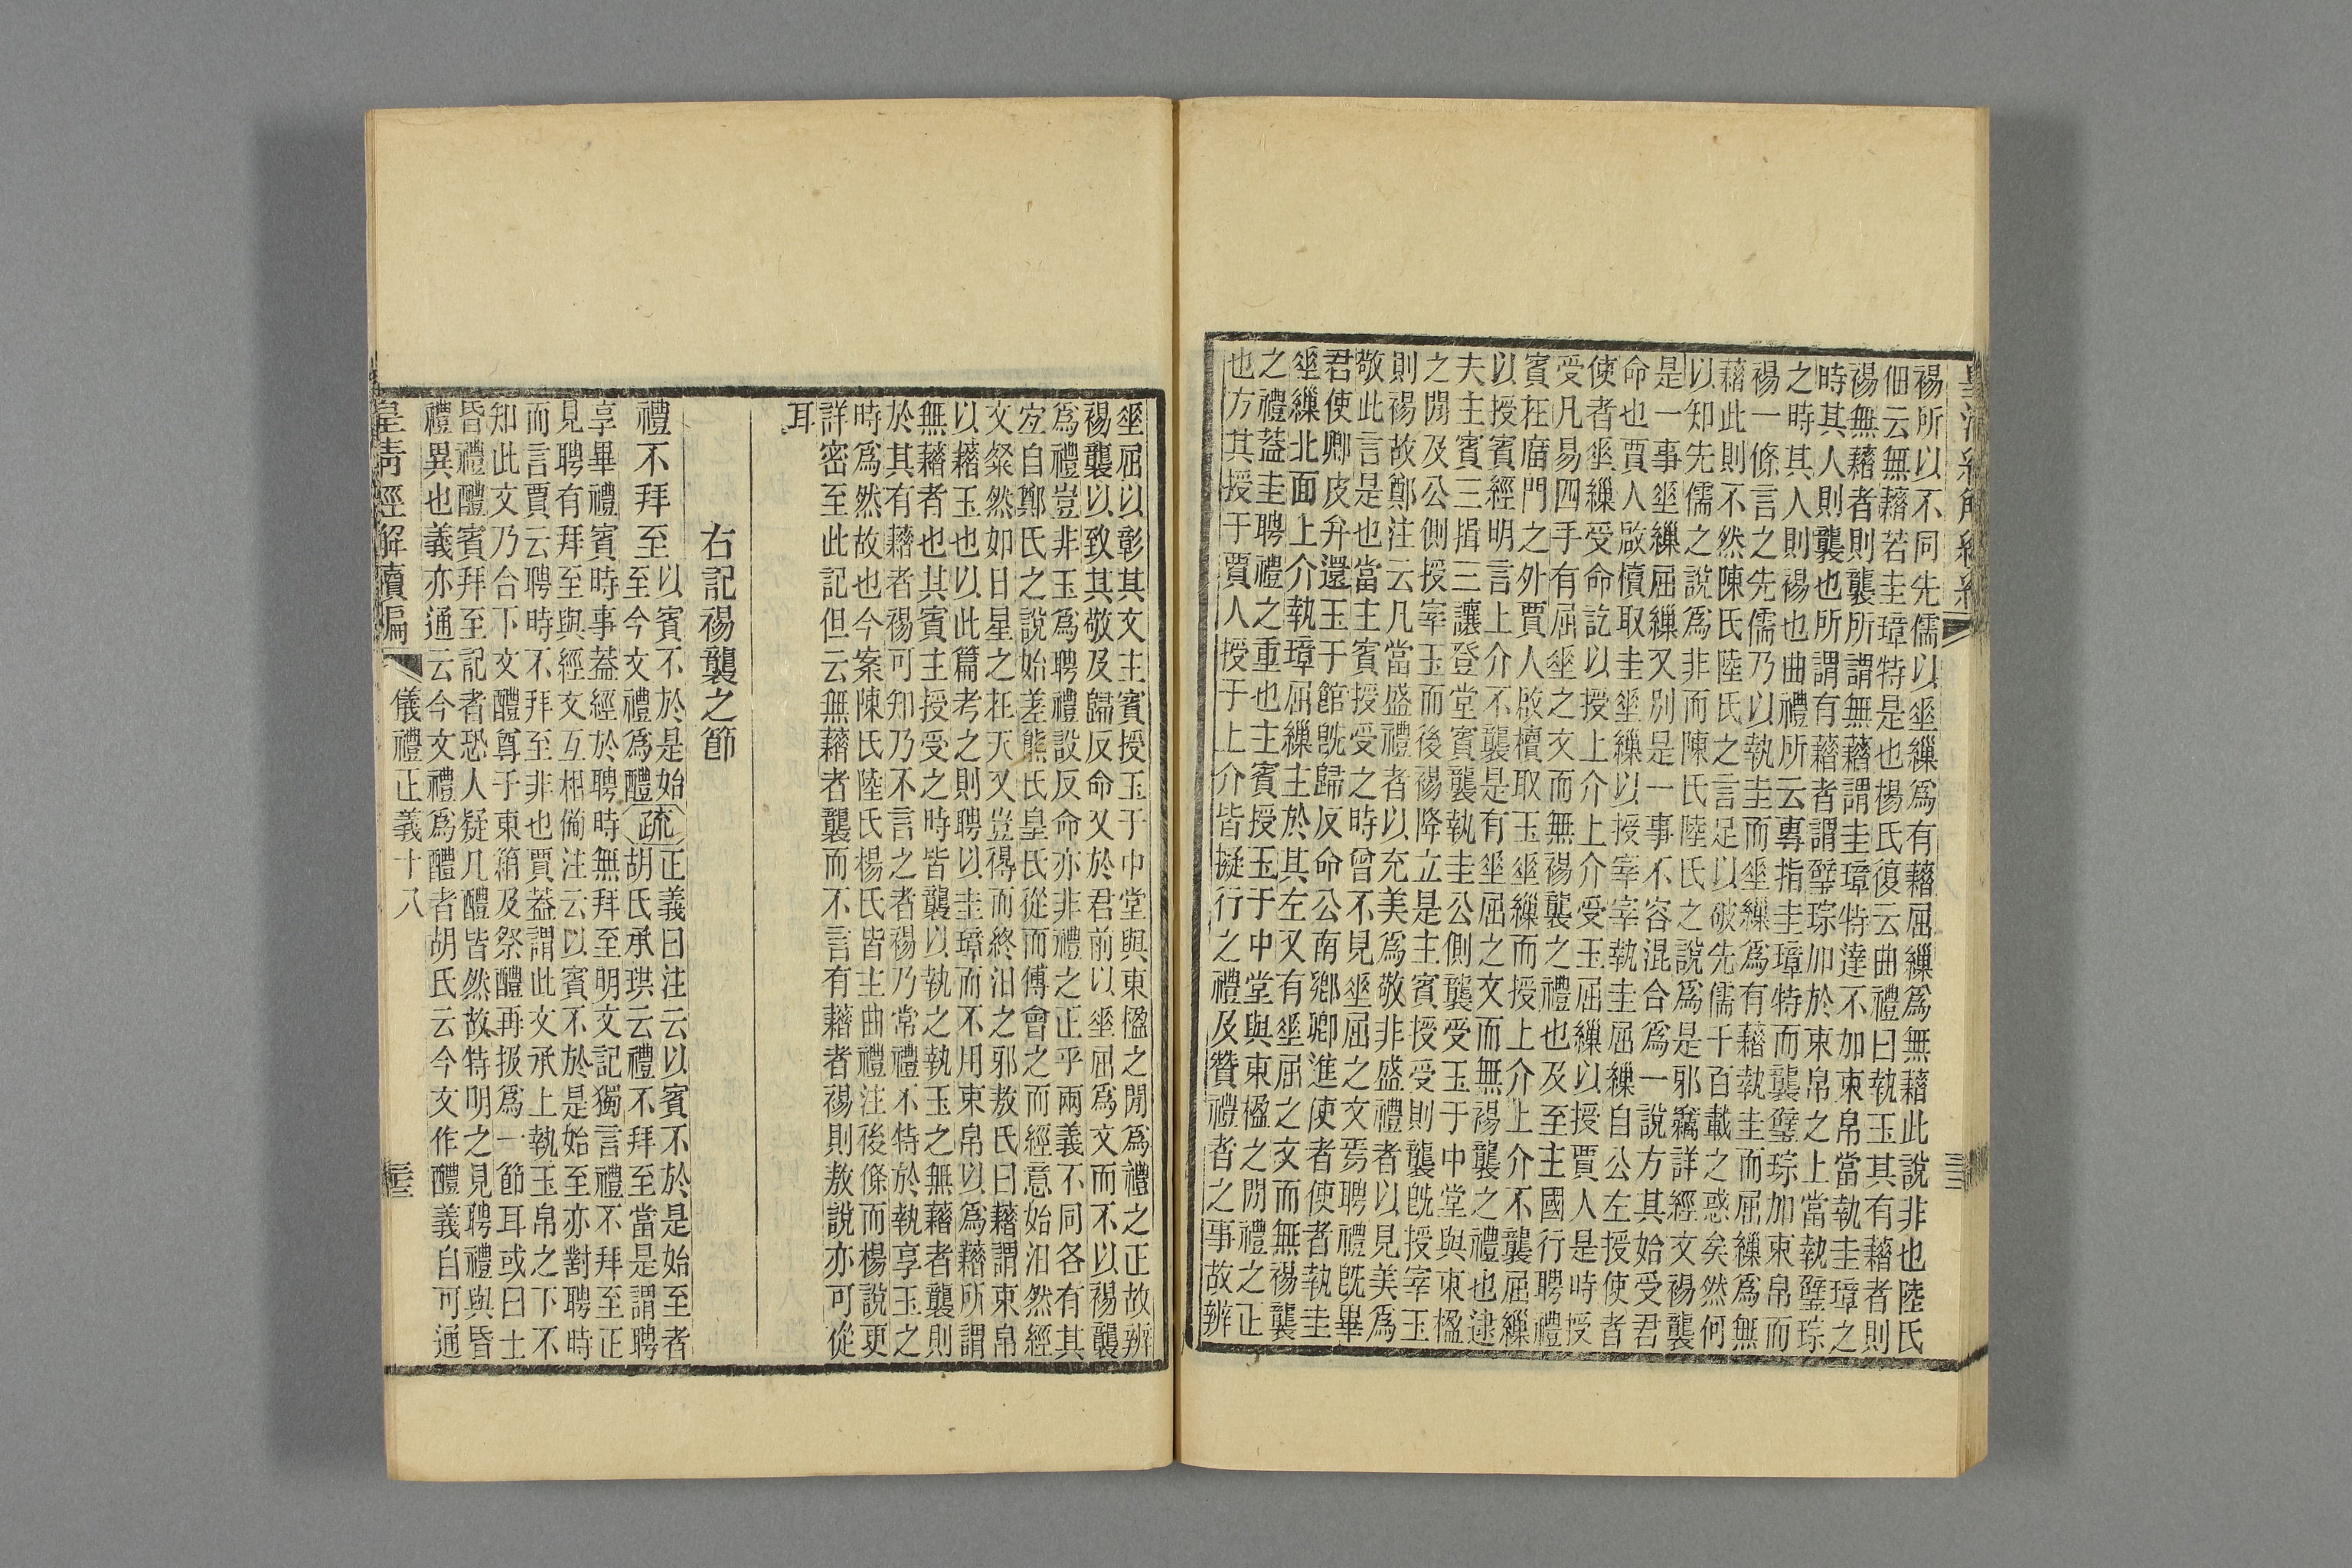 裼所以不同先儒以𡊄繅爲有藉屈繅爲無藉此說非也陸氏
佃云無藉若圭璋特是也楊氏復云曲禮曰執玉其有藉者則
裼無藉者則襲所謂無藉謂圭璋特達不加束帛當執圭璋之
時其人則襲也所謂有藉者謂璧琮加於束帛之上當執璧琮
之時其人則裼也曲禮所云專指圭璋特而襲璧琮加束帛而
裼一條言之先儒乃以執圭而𡊄繅爲有藉執圭而屈繅爲無
藉此則不然陳氏陸氏之言足以破先儒千百載之惑矣然何
以知先儒之說爲非而陳氏陸氏之說爲是邪竊詳經文裼襲
是一事𡊄繅屈繅又別是一事不容混合爲一說方其始受君
命也賈人啟櫝取圭𡊄繅以授宰宰執圭屈繅自公左授使者
使者𡊄繅受命訖以授上介上介受玉屈繅以授賈人是時授
受凡易四手有屈𡊄之文而無裼襲之禮也及至主國行聘禮
賓在廟門之外賈人啟櫝取玉𡊄繅而授上介上介不襲屈繅
以授賓經明言上介不襲是有𡊄屈之文而無裼襲之禮也逮
夫主賓三揖三讓登堂賓襲執圭公側襲受玉于中堂與東楹
之閒及公側授宰玉而後裼降立是主賓授受則襲旣授宰玉
則裼故鄭注云凡當盛禮者以充美爲敬非盛禮者以見美爲
敬此言是也當主賓授受之時曾不見𡊄屈之文焉聘禮旣畢
君使卿皮弁還玉于館旣歸反命公南鄉卿進使者使者執圭
𡊄繅北面上介執璋屈繅主於其左又有𡊄屈之文而無裼襲
之禮蓋圭聘禮之重也主賓授玉于中堂與東楹之閒禮之正
也方其授于賈人授于上介皆擬行之禮及贊禮者之事故辨
𡊄屈以彰其文主賓授玉于中堂與東楹之閒爲禮之正故辨
裼襲以致其敬及歸反命又於君前以𡊄屈爲文而不以裼襲
爲禮豈非玉爲聘禮設反命亦非禮之正乎兩義不同各有其
宜自鄭氏之說始差熊氏皇氏從而傅會之而經意始汩然經
文粲然如日星之在天又豈得而終汩之邪敖氏曰藉謂束帛
以藉玉也以此篇考之則聘以圭璋而不用束帛以爲藉所謂
無藉者也其賓主授受之時皆襲以執之執玉之無藉者襲則
於其有藉者裼可知乃不言之者裼乃常禮不特於執享玉之
時爲然故也今案陳氏陸氏楊氏皆主曲禮注後條而楊說更
詳密至此記但云無藉者襲而不言有藉者裼則敖說亦可從
耳
右記裼襲之節
禮不拜至以賓不於是始至今文禮爲醴疏正義曰注云以賓不於是始至者
胡氏承珙云禮不拜至當是謂聘
享畢禮賓時事蓋經於聘時無拜至明文記獨言禮不拜至正
見聘有拜至與經文互相備注云以賓不於是始至亦對聘時
而言賈云聘時不拜至非也賈蓋謂此文承上執玉帛之下不
知此文乃合下文醴尊于東箱及祭醴再扱爲一節耳或曰士
昏禮醴賓拜至記者恐人疑凡醴皆然故特明之見聘禮與昏
禮異也義亦通云今文禮爲醴者胡氏云今文作醴義自可通
皇清經解續編
儀禮正義十八